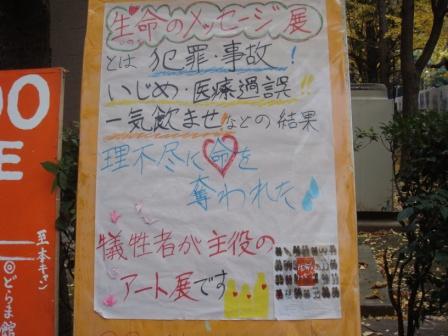 生命のメッセージ展
とは 犯罪・事故！
いじめ・医療過誤!!
一気飲ませなどの結果
理不尽に命を
奪われた
犠牲者が主役の
アート展です
OO
E
至本キャン
どらま館